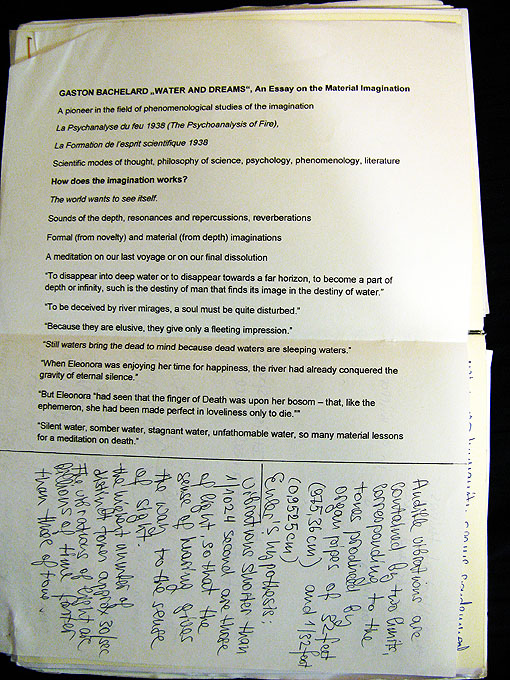 GASTON BACHELARD „WATER AND DREAMS“, An Essay on the Material Imagination
A pioneer in the field of phenomenological studies of the imagination
La Psychanalyse du feu 1938 (The Psychoanalysis of Fire),
La Formation de l'esprit scientifique 1938
Scientific modes of thought, philosophy of science, psychology, phenomenology, literature
How does the imagination works?
The world wants to see itself.
Sounds of the depth, resonances and repercussions, reverberations
Formal (from novelty) and material (from depth) imaginations
A meditation on our last voyage or on our final dissolution
"To disappear into deep water or to disappear towards a far horizon, to become a part of
depth or infinity, such is the destiny of man that finds its image in the destiny of water."
"To be deceived by river mirages, a soul must be quite disturbed."
"Because they are elusive, they give only a fleeting impression."
"Still waters bring the dead to mind because dead waters are sleeping waters."
"When Eleonora was enjoying her time for happiness, the river had already conquered the
gravity of eternal silence."
"But Eleonora "had seen that the finger of Death was upon her bosom – that, like the
ephemeron, she had been made perfect in loveliness only to die.""
"Silent water, somber water, stagnant water, unfathomable water, so many material lessons
for a meditation on death."
Audible vibrations are
contained by two limits,
corresponding to the
tones produced by
organ pipes of 32 feet
(975,36 cm) and 1/32 feet
(0,9525 cm)
Euler's hypothesis:
Vibrations shorter than
1/1024 second are those
of light, so that the
sense of hearing gives
the way to the sense
of sight.
the highest number of
distinct tones approx 30/sec
The vibrations of light are
billions of time faster
than those of tone.